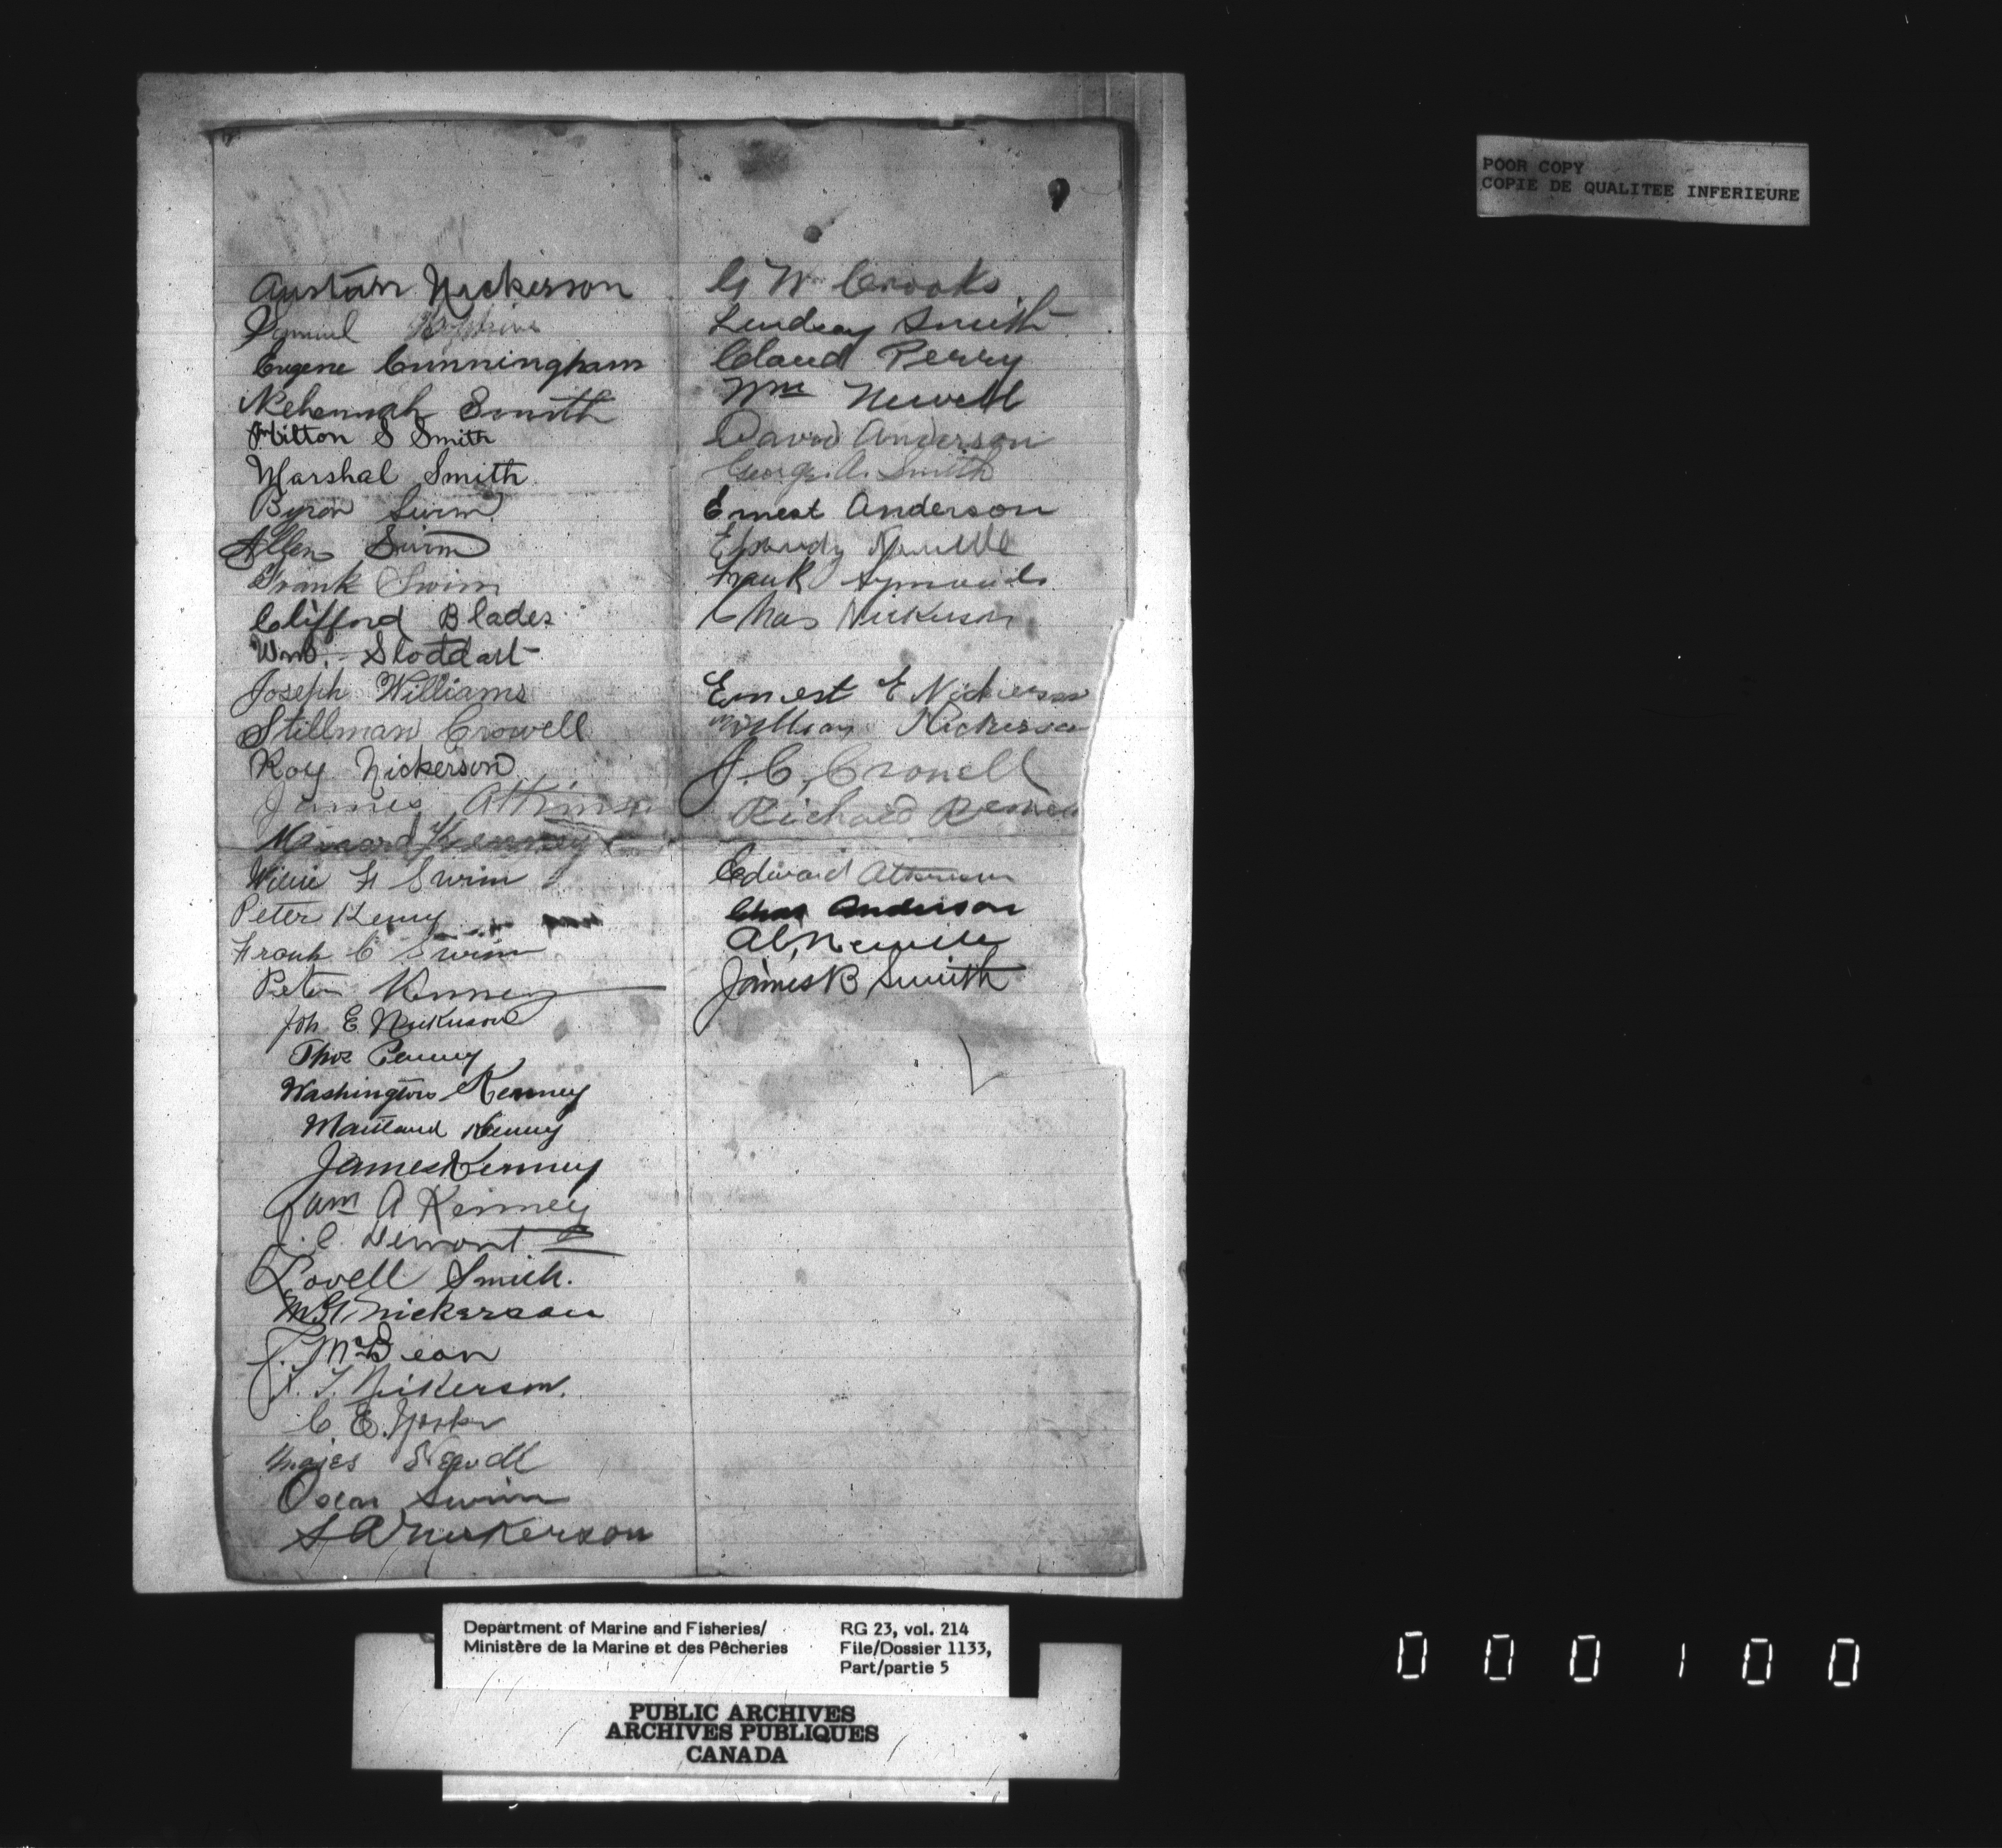 POOR COPY
COPIE DE QUALITEE INFERIEURE
Austin Nickerson
Hopkins
Eugene Cunningham
Nehemiah Smith
Milton S Smith
Marshal Smith
Byron Swim
Allen Swim
Frank Swim
Clifford Blades
Wm. Stoddart
Joseph Williams
Stillman Crowell
Roy Nickerson
James Atkinson
Kenney
Willie H Swim
Peter Kenny
Frank C Swim
Peter Kenney
Joh E Nickerson
Thos Penny
Washington Kenney
Maitland Kenny
James Kenney
A Kenney
J. C. Demont
Lovell Smith.
M. H. Nickerson
J. McBean
J. T. Nickerson.
C. E.
Newell
Oscar Swim
S A Nickerson
G W Crooks
Lindsay Smith
Claud Perry
Wm Newell
David Anderson
George A. Smith
Ernest Anderson
Newell
Frank Symonds
Chas Nickerson
Ernest E Nickerson
William Nickerson
J. C. Crowell
Richard
Edward Atkinson
Chas Anderson
James B Smith
Department of Marine and Fisheries/
Ministère de la Marine et des Pêcheries
RG 23, vol. 214
File/Dossier 1133,
Part/partie 5
PUBLIC ARCHIVES
ARCHIVES PUBLIQUES
CANADA
000100